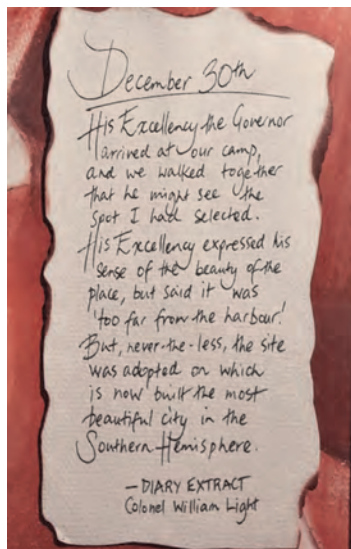 December 30th
His Excellency the Governor
arrived at our camp,
and we walked together
that he might see the
spot I had selected.
His Excellency expressed his
sense of the beauty of the
place, but said it was
'too far from the harbour.'
But, never-the-less, the site
was adopted on which
is now built the most
beautiful city in the
Southern Hemisphere.
— DIARY EXTRACT
Colonel William Light